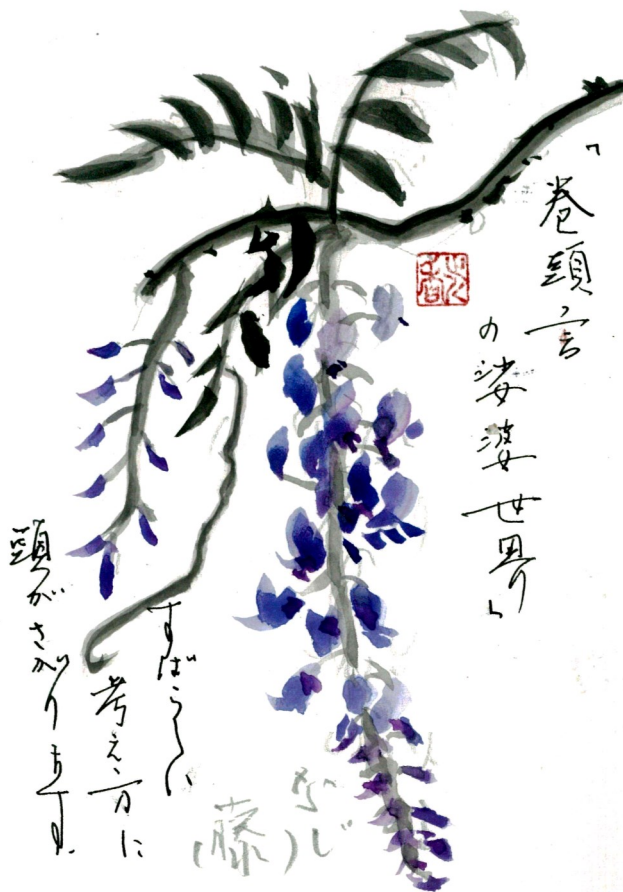 「巻頭言
の娑婆世界」
すばらしい
考え方に
頭がさがります。
ふじ
(藤)